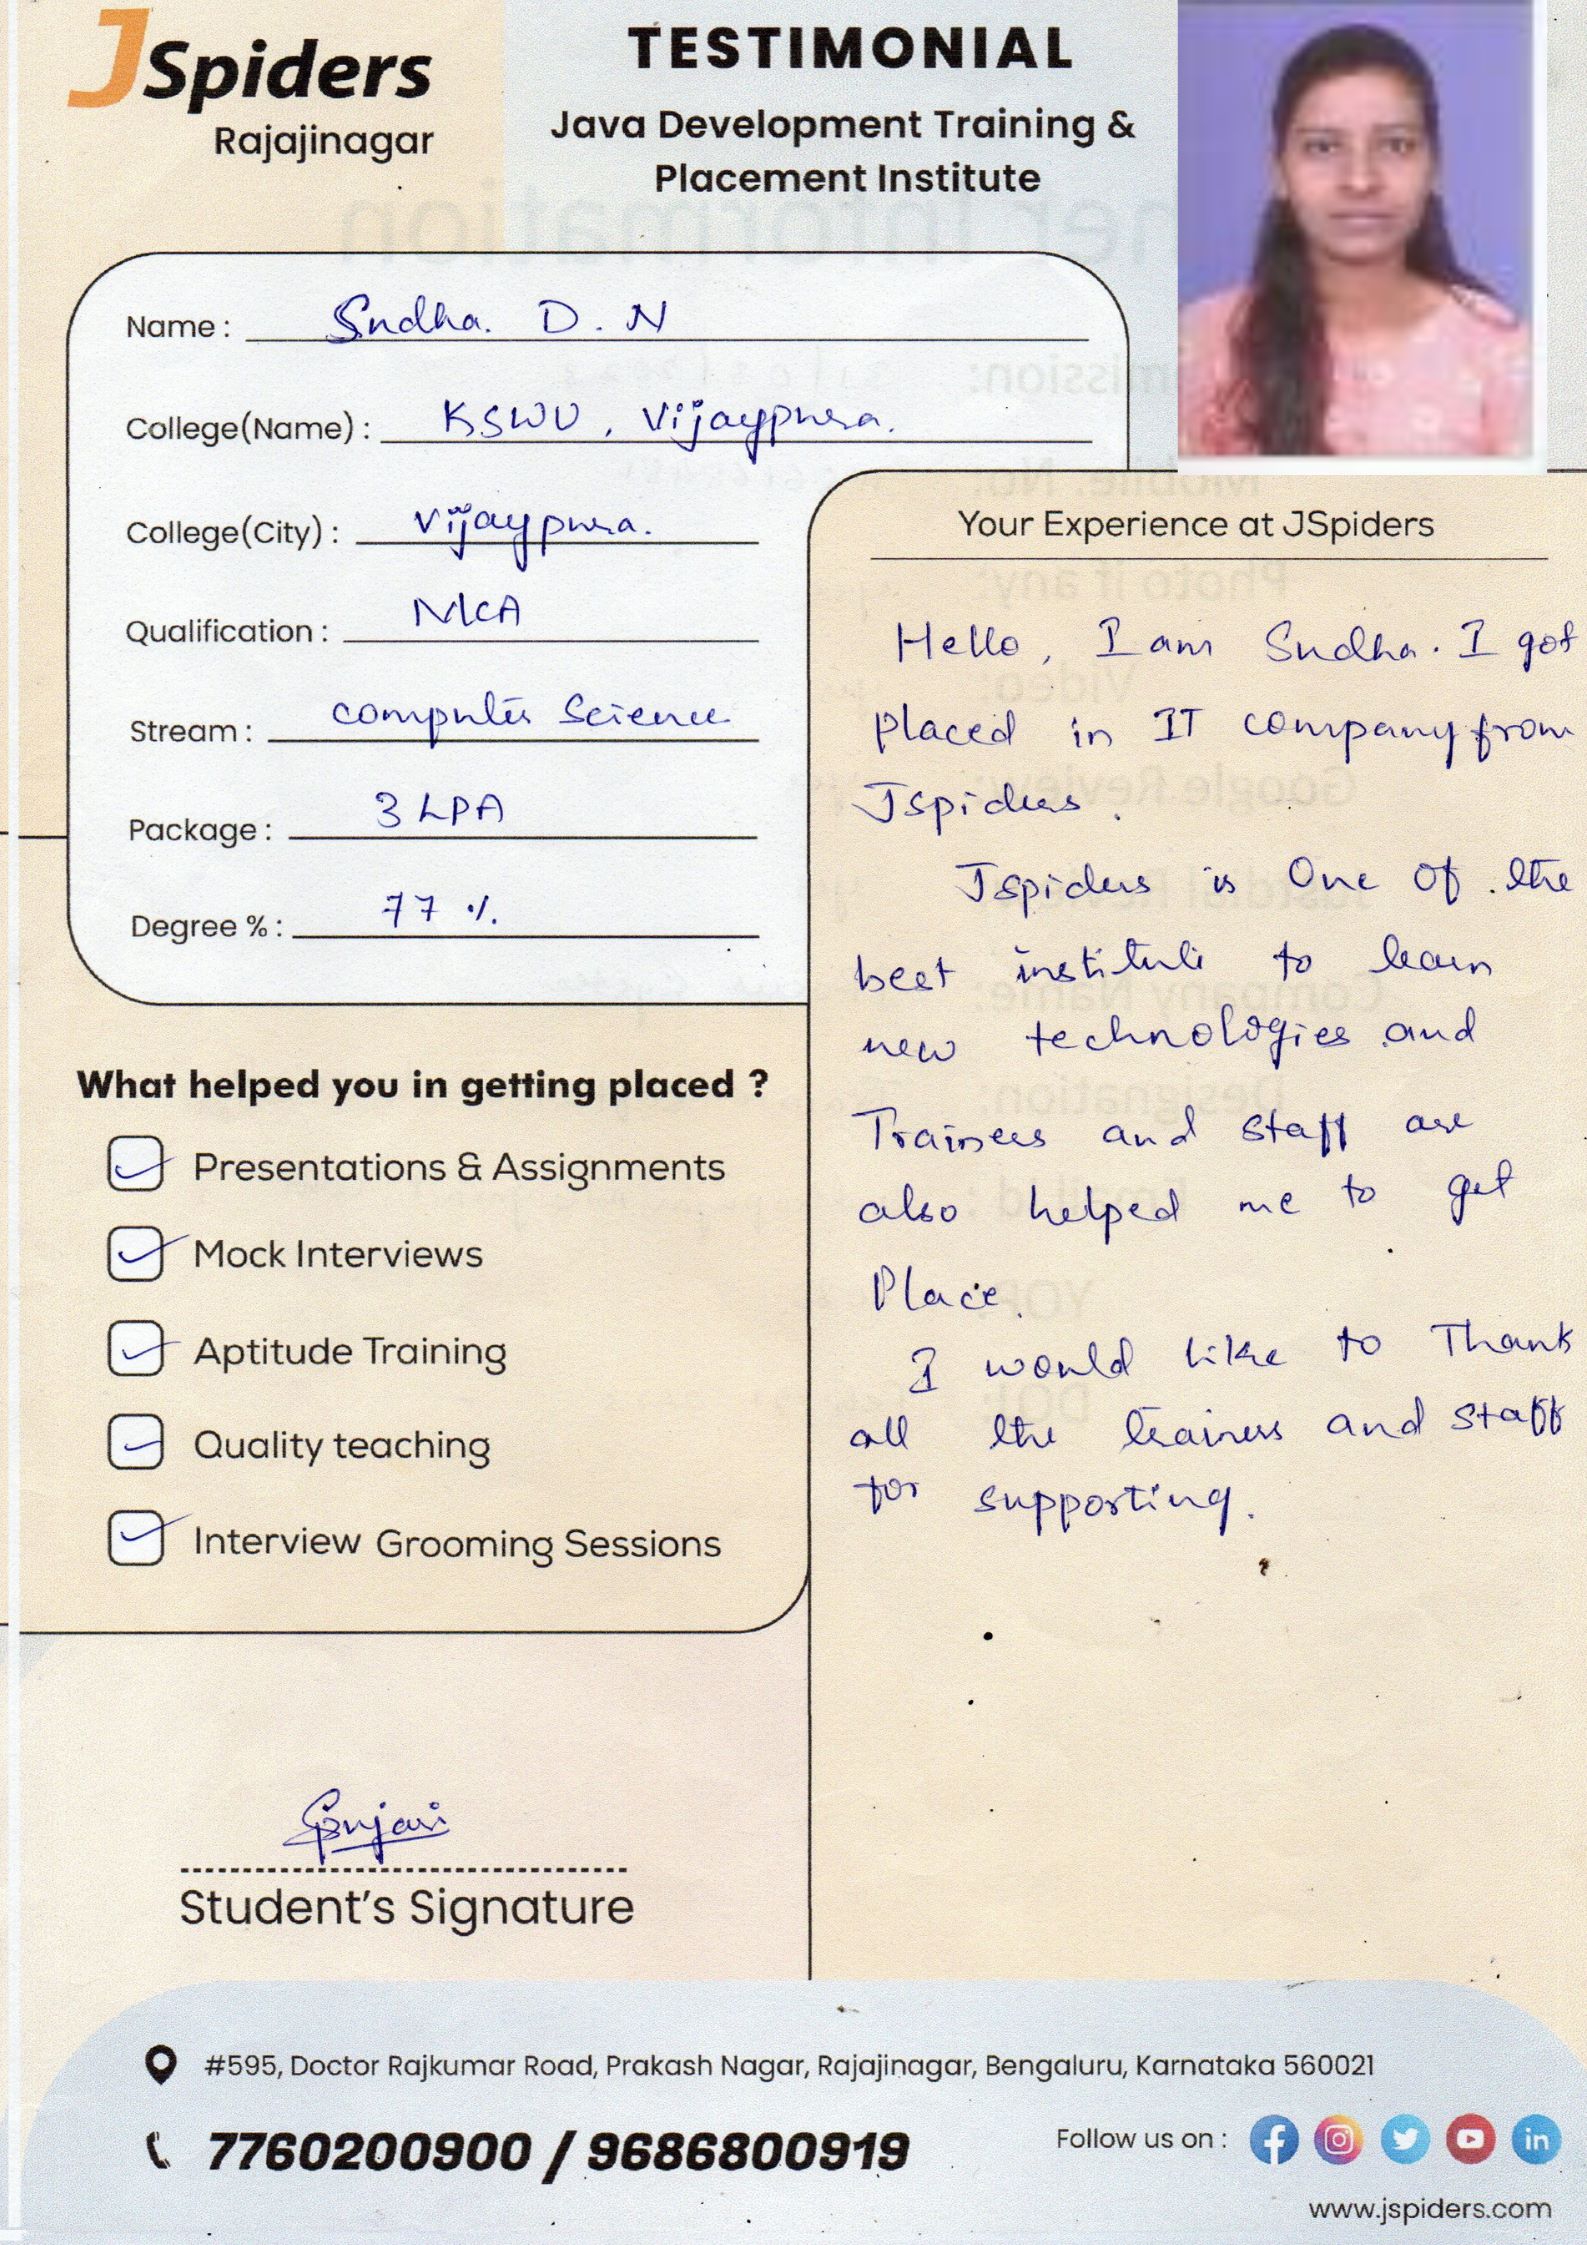 JSpiders
Rajajinagar
TESTIMONIAL
Java Development Training &
Placement Institute
Name : Sudha. D. N
College(Name) : KSWU, Vijaypura.
College(City) : Vijaypura.
Qualification : MCA
Stream : computer Science
Package : 3 LPA
Degree % : 77 %
What helped you in getting placed ?
Presentations & Assignments
Mock Interviews
Aptitude Training
Quality teaching
Interview Grooming Sessions
Student's Signature
Your Experience at JSpiders
Hello, I am Sudha. I got
placed in IT company from
Jspiders.
Jspiders is One of the
best institute to learn
new technologies and
Trainers and staff are
also helped me to get
Place.
I would like to Thank
all the trainers and staff
for supporting.
#595, Doctor Rajkumar Road, Prakash Nagar, Rajajinagar, Bengaluru, Karnataka 560021
7760200900 / 9686800919
Follow us on :
www.jspiders.com